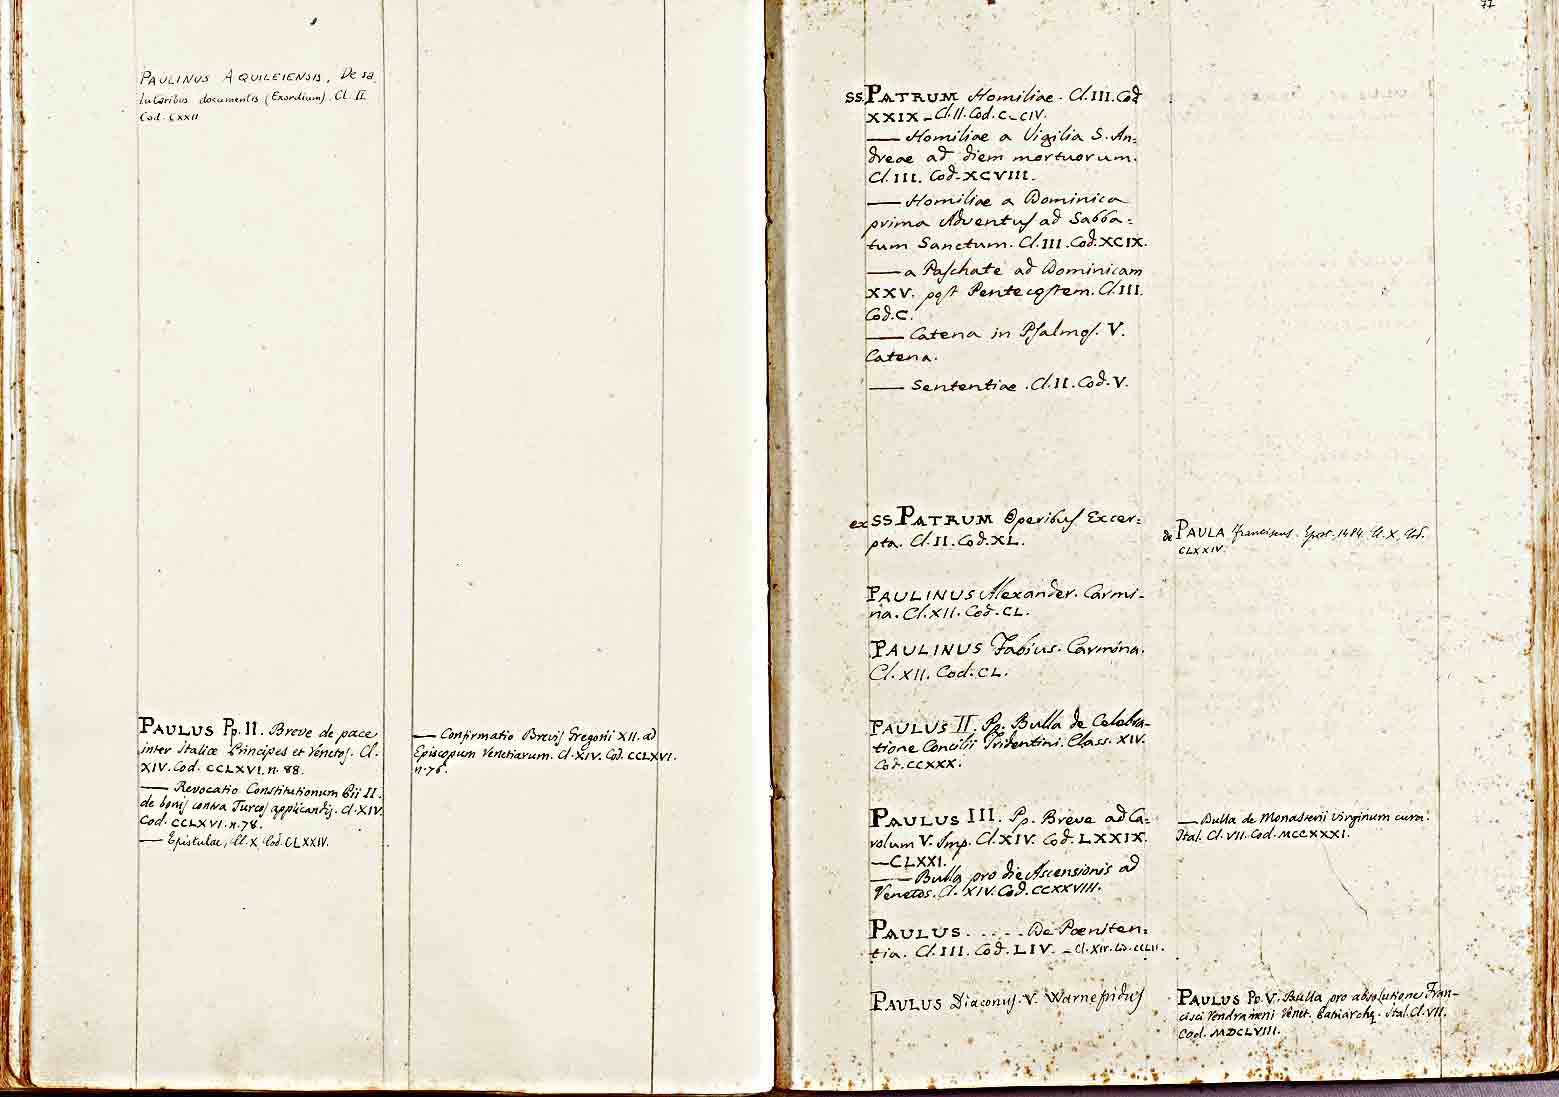 PAULINUS AQUILEIENSIS. De sa
lutaribus documentis (Exordium). Cl. II
Cod. CXXII
PAULUS Pp. II. Breve de pace
inter Italiæ Principes et Venetos. Cl.
XIV. Cod. CCLXVI. n. 88.
— Revocatio Constitutionum Pii II.
de bonis contra Turcos applicandis. Cl. XIV.
Cod. CCLXVI. n. 78.
— Epistulae, Cl. X, Cod. CLXXIV.
— Confirmatio Brevis Gregorii XII. ad
Episcopum Venetiarum. Cl. XIV. Cod. CCLXVI.
n. 76.
71
SS. PATRUM Homiliae. Cl. III. Cod
XXIX – Cl. II. Cod. C–CIV.
— Homiliae a Vigilia S. An=
dreae ad diem mortuorum.
Cl. III. Cod. XCVIII.
— Homiliae a Dominica
prima Adventus ad Sabba=
tum Sanctum. Cl. III. Cod. XCIX.
— a Paschate ad Dominicam
XXV. post Pentecostem. Cl. III.
Cod. C.
— Catena in Psalmos. V.
Catena.
— Sententiae. Cl. II. Cod. V.
ex SS PATRUM Operibus Excer=
pta. Cl. II. Cod. XL.
PAULINUS Alexander. Carmi-
na. Cl. XII. Cod. CL.
PAULINUS Fabius. Carmina.
Cl. XII. Cod. CL.
PAULUS II. Pp. Bulla de Celebra-
tione Concilii Tridentini. Class. XIV.
Cod. CCXXX.
PAULUS III. Pp. Breve ad Ca=
rolum V. Imp. Cl. XIV. Cod. LXXIX.
— CLXXI.
— Bulla pro die Ascensionis ad
Venetos. Cl. XIV. Cod. CCXXVIII.
PAULUS . . . . . De Pœniten=
tia. Cl. III. Cod. LIV. – Cl. XIV. Cod. CCLII.
PAULUS Diaconus. V. Warnefridus
de PAULA Franciscus. Epist. 1484. Cl. X, Cod.
CLXXIV.
— Bulla de Monasterii virginum cura.
Ital. Cl. VII. Cod. MCCXXXI.
PAULUS Pp. V. Bulla pro absolutione Fran-
cisci Vendrameni Venet. Patriarchę. Ital. Cl. VII.
Cod. MDCLVIII.